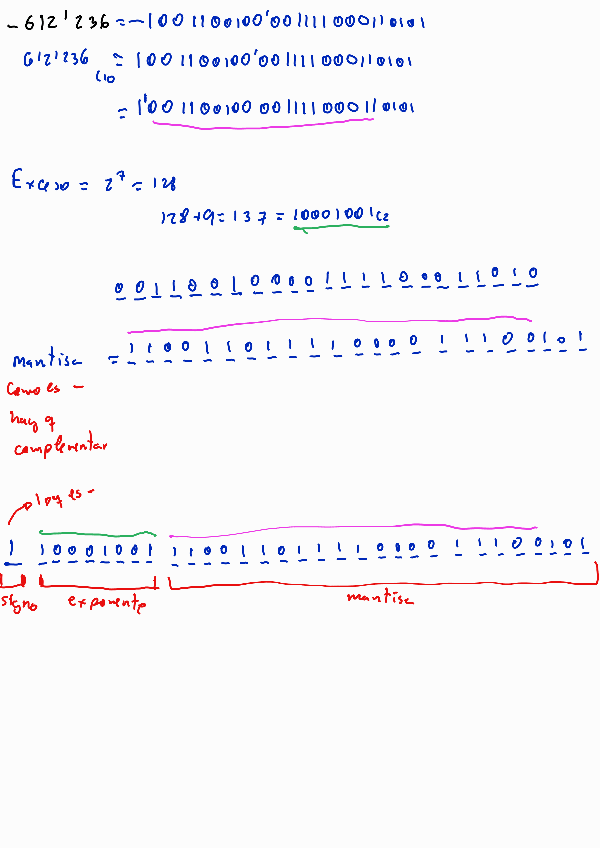 -612'236 = -1001100100'001111000110101
612'236 (10 = 1001100100'001111000110101
= 1'001100100001111000110101
Exceso = 2^7 = 128
128+9 = 137 = 10001001 C2
0 0 1 1 0 0 1 0 0 0 0 1 1 1 1 0 0 0 1 1 0 1 0
mantisa = 1 1 0 0 1 1 0 1 1 1 1 0 0 0 0 1 1 1 0 0 1 0 1
Como es -
hay q
complementar
1 pq es -
1 1 0 0 0 1 0 0 1 1 1 0 0 1 1 0 1 1 1 1 0 0 0 0 1 1 1 0 0 1 0 1
signo exponente mantisa